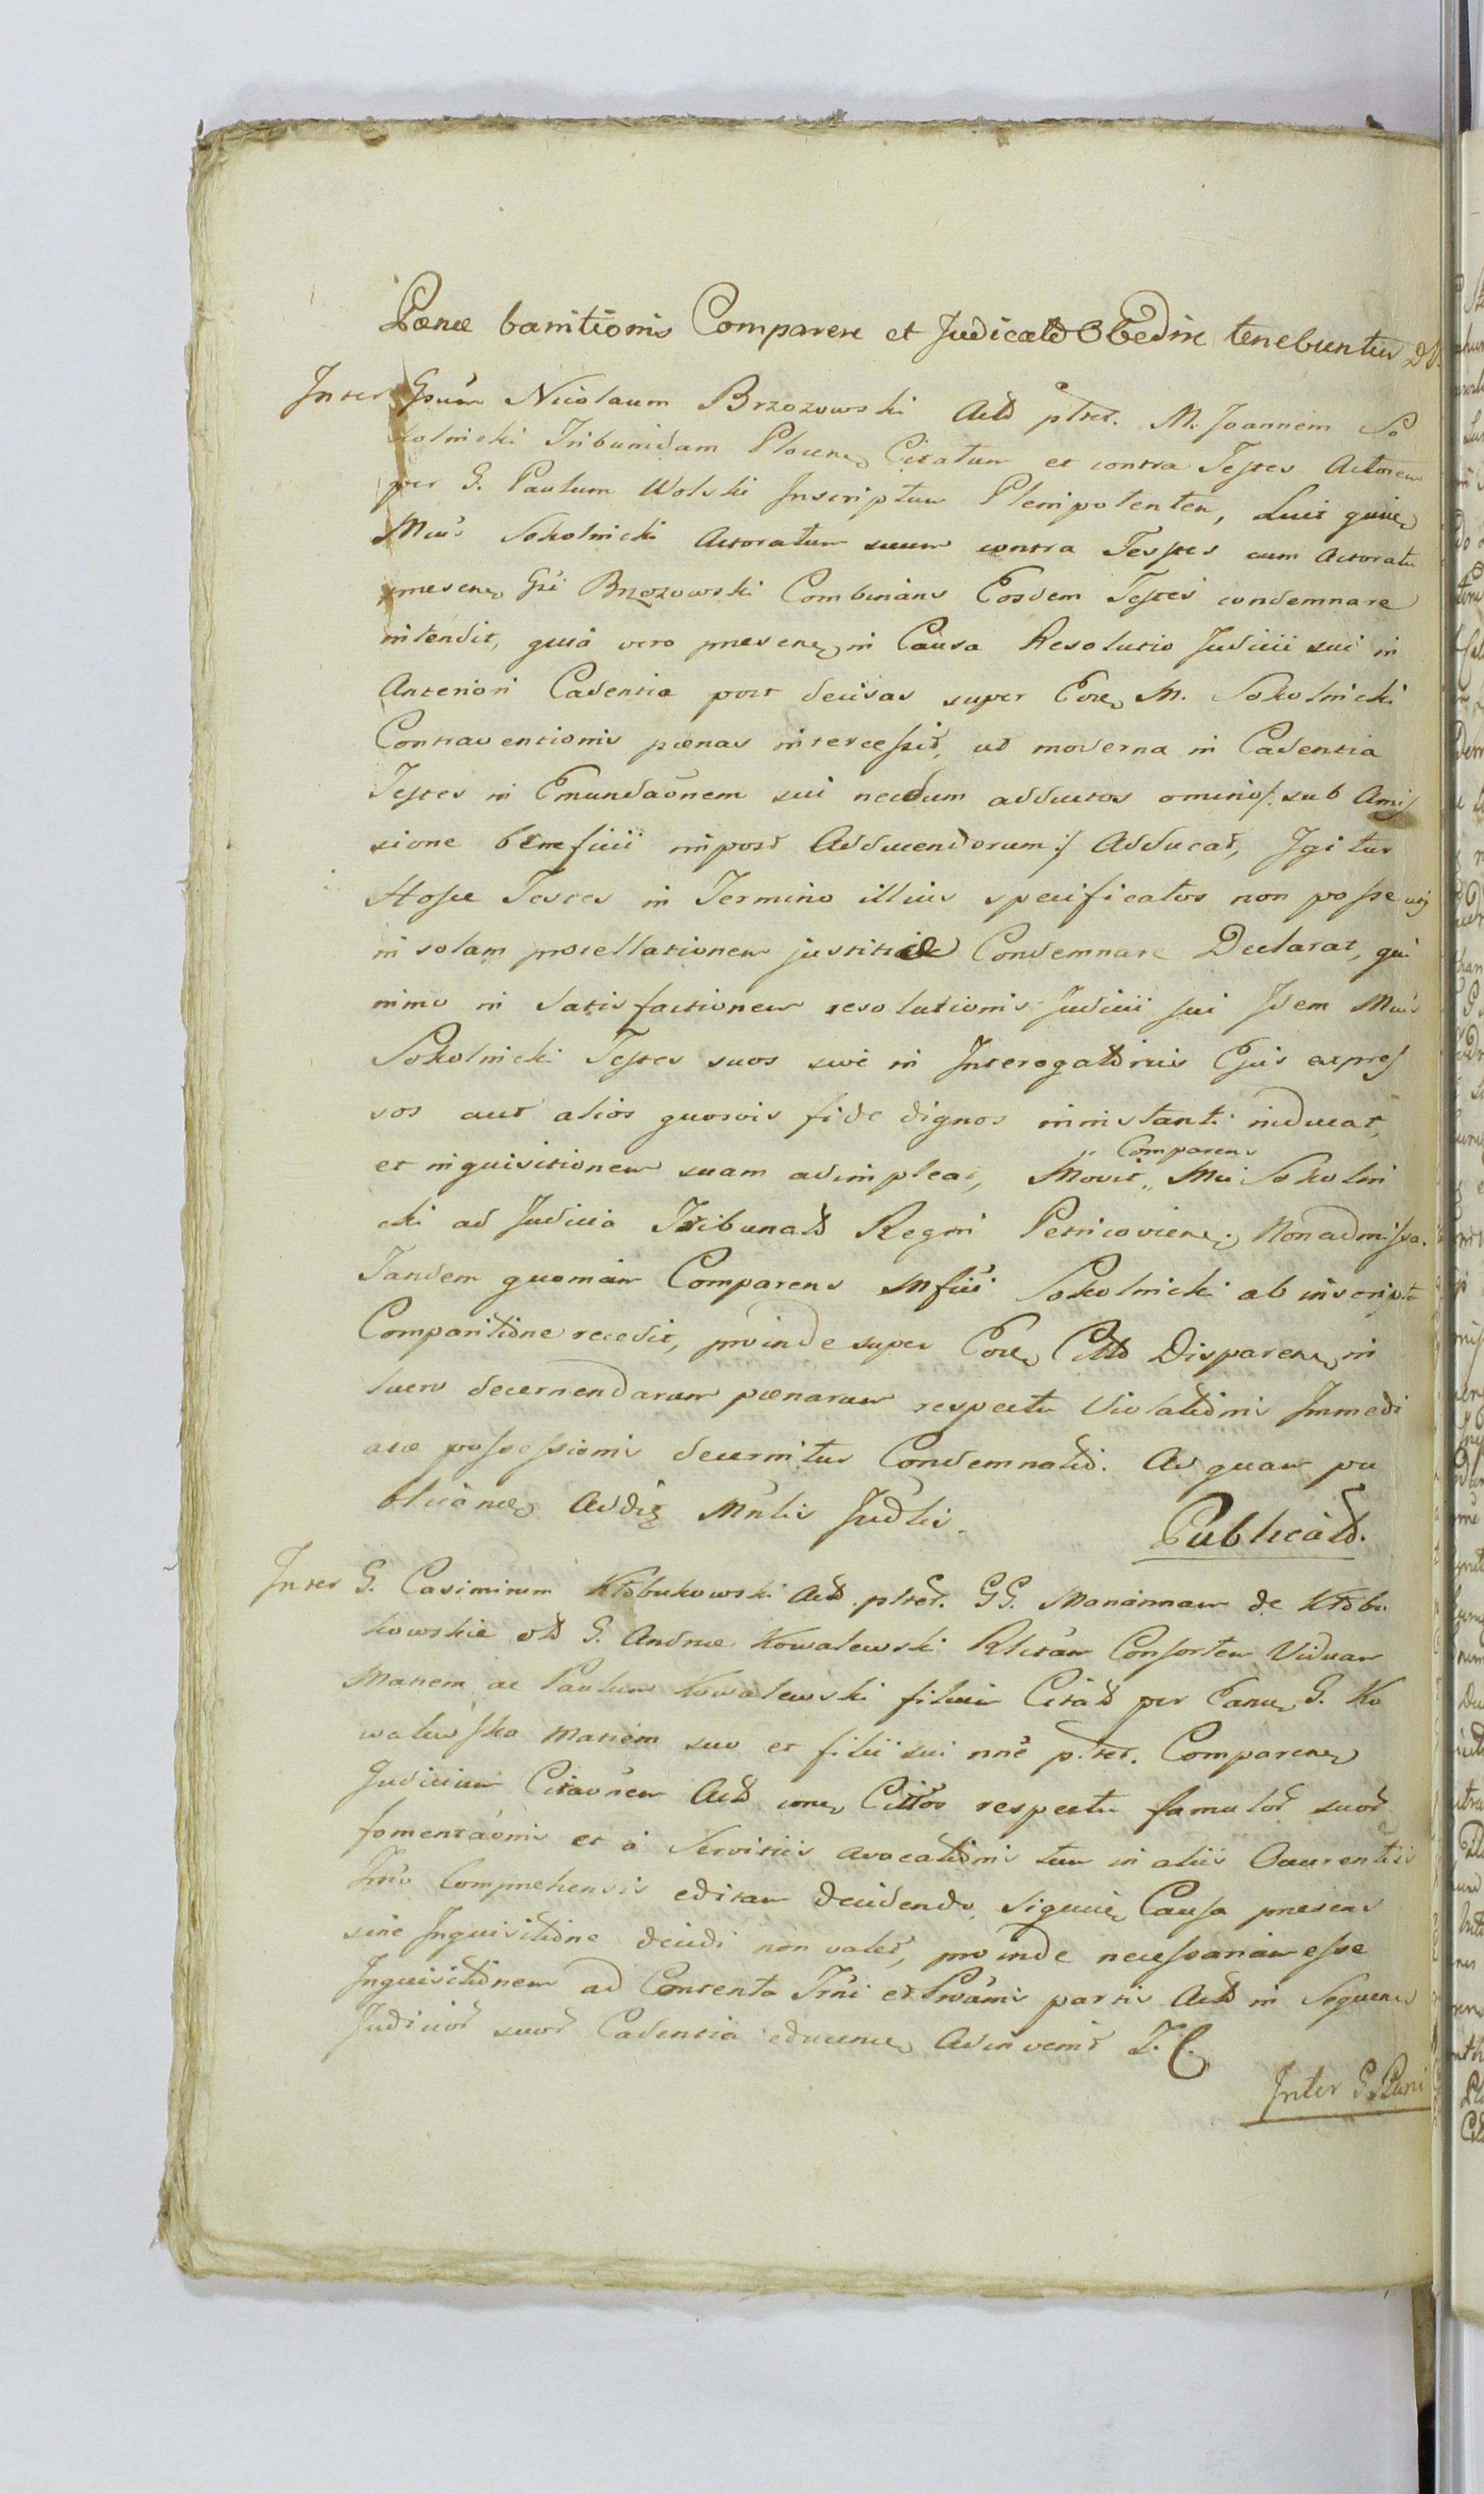 Pœnæ banitionis Comparere et Judicatd Obedire tenebuntur
Inter Gsum Nicolaum Brzozowski Actd ptret. M. Joannem So
kolnicki Tribunidam Plocen Citatum et contra Testes Actorem
per G. Paulum Wolski Inscriptum Plenipotentem, Licet quie
Mcus Sokolnicki Actoratum suum contra Testes cum Actoratu
presen Gsi Brzozowski Combinans Eosdem Testes condemnare
intendit, quia vero presen in Causa Resolutio Judicii sui in
Anteriori Cadentia post decisas super Eore M. Sokolnicki
Contraventionis pœnas intercessit, ut moderna in Cadentia
Testes in Emundaonem sui necdum adductos omino/: sub Amis
sione beneficii inpost Adducendorum :/ Adducat, Igitur
Hosce Testes in Termino illius specificatos non posse
in solam procellationem justitiæ Condemnare Declarat, qui
nimo in Satisfactionem resolutionis Judicii sui Idem Mcus
Sokolnicki Testes suos sive in Interogatoriis Ejus expres
sos aut alios quosvis fide dignos ininstanti inducat,
et inquisitionem suam adimpleat, Movit " Comparens Mci Sokolni
cki ad Judicia Tribunald Regni Petricovien. Non admissa.
Tandem quoniam Comparens Mfici Sokolnicki ab inscript
Comparitione recedit, proinde super Eore Cittd Disparen in
lucro decernendarum pœnarum respectu Violationis Immedi
atæ possessionis decernitur Condemnatio. Ad quam pu
blicane Addit Mnlis Judlis. Publicatd.
Inter G. Casimirum Kłobukowski Actd. ptret. GG. Mariannam de Kłobu
kowskie G. Andreæ Kowalewski Rlictam Consortem Viduam
Matrem ac Paulum Kowalewski filium Citatd per Eande G. Ko
walewska Matrem suo et filii sui nne ptret. Comparen
Judicium Citaonem Actd cone Cittos respectu famulor suor
fomentaonis et à Servitiis avocationis tum in aliis Ocurentiis
Trno Comprehensis editam decidendo, Siquie Causa presens
sine Inquisitione decidi non valet, proinde necessariam esse
Inquisitionem ad Contenta Trni et partis Actd in Sequen
Judicior suor Cadentia educen Adinvenit T. C.
Inter G. Pauli